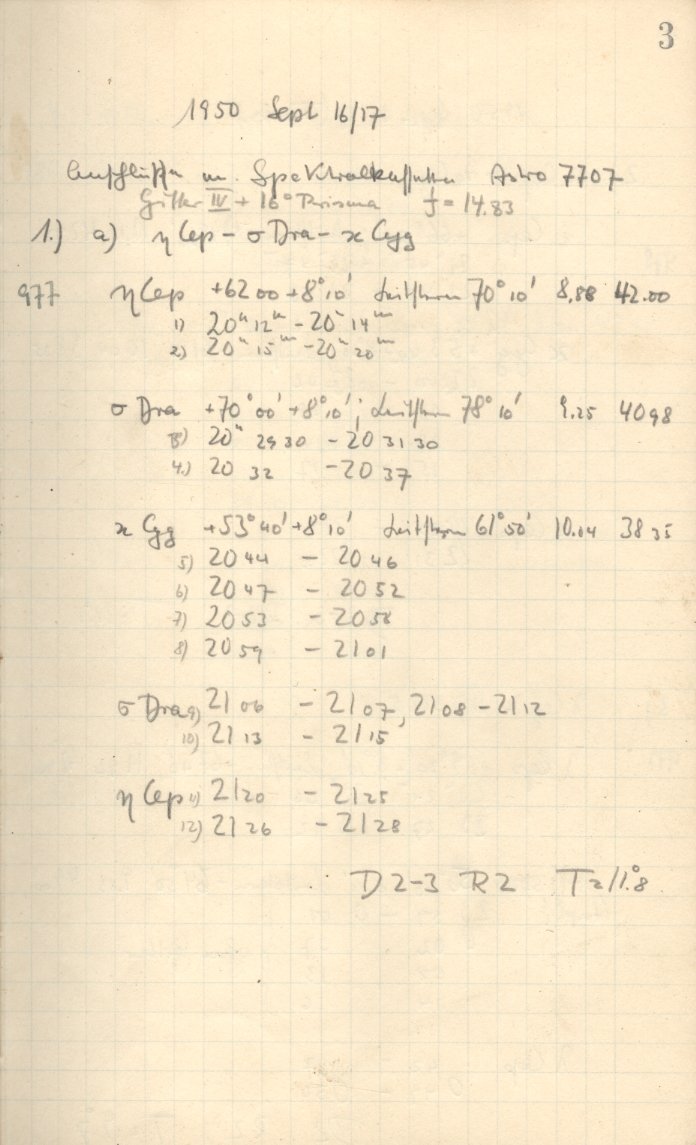 3
1950 Sept 16/17
Anschlüsse m. Spektralkassetten Astro 7707
Gitter IV + 16° Prisma f = 14.83
1.) a) η Cep - σ Dra - κ Cyg
977 η Cep +62 00 + 8° 10' Leitstern 70° 10' 8.88 42.00
1) 20h 12m - 20h 14m
2) 20h 15m - 20h 20m
σ Dra +70° 00' + 8° 10'; Leitstern 78° 10' 9.25 40 98
3) 20h 29 30 - 20 31 30
4.) 20 32 - 20 37
κ Cyg +53° 40' + 8° 10' Leitstern 61° 50' 10.04 38 35
5) 20 44 - 20 46
6) 20 47 - 20 52
7) 20 53 - 20 58
8) 20 59 - 21 01
σ Dra 9) 21 06 - 21 07, 21 08 - 21 12
10) 21 13 - 21 15
η Cep 11) 21 20 - 21 25
12) 21 26 - 21 28
D 2-3 R 2 T = 11.°8